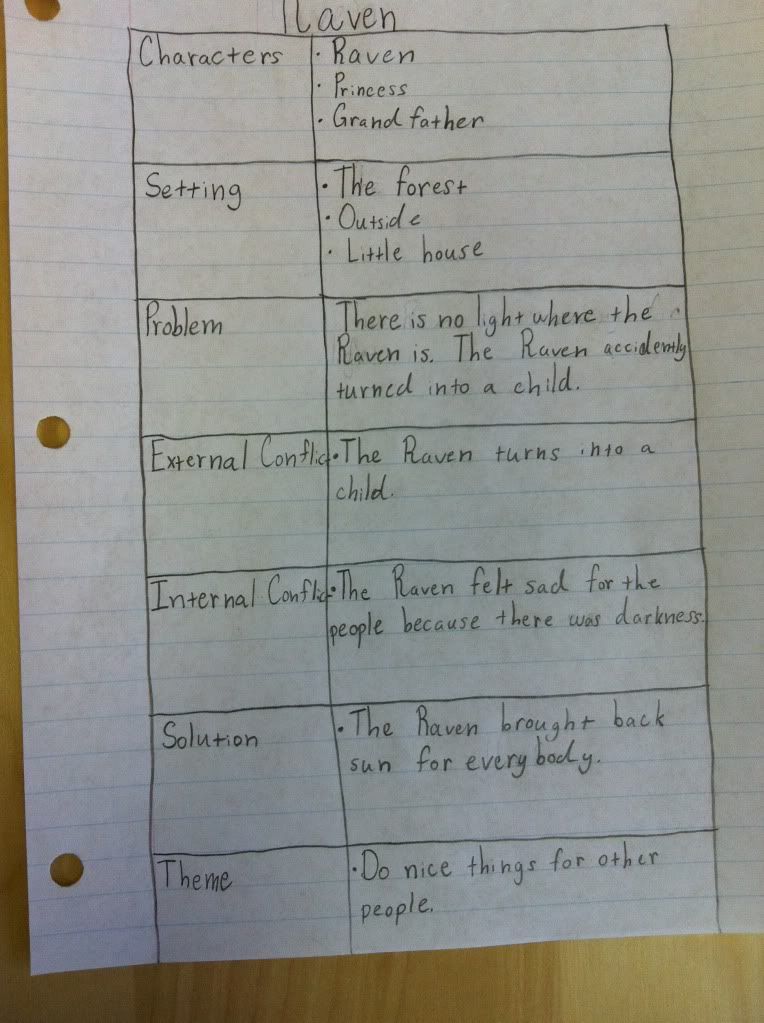 Raven
Characters
· Raven
· Princess
· Grandfather
Setting
· The forest
· Outside
· Little house
Problem
There is no light where the
Raven is. The Raven accidently
turned into a child.
External Conflic
· The Raven turns into a
child.
Internal Conflic
· The Raven felt sad for the
people because there was darkness.
Solution
· The Raven brought back
sun for everybody.
Theme
· Do nice things for other
people.